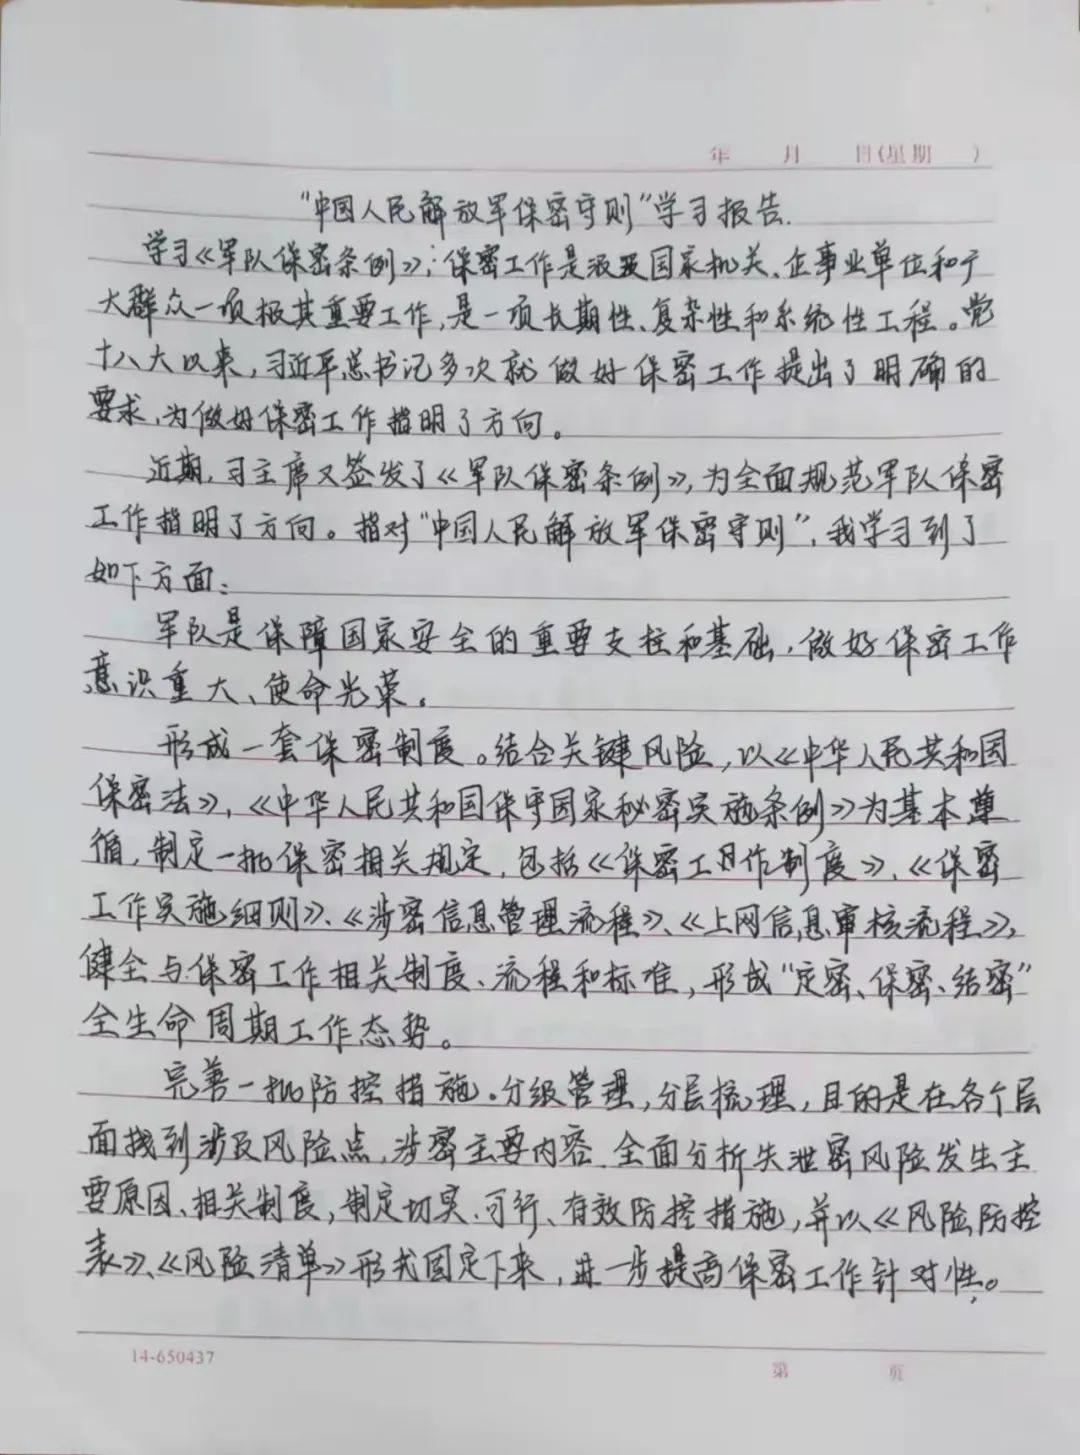 年 月 日(星期 )
"中国人民解放军保密守则"学习报告.
学习《军队保密条例》;保密工作是涉及国家机关、企事业单位和广
大群众一项极其重要工作,是一项长期性、复杂性和系统性工程。党
十八大以来,习近平总书记多次就做好保密工作提出了明确的
要求,为做好保密工作指明了方向。
近期,习主席又签发了《军队保密条例》,为全面规范军队保密
工作指明了方向。指对"中国人民解放军保密守则",我学习到了
如下方面:
军队是保障国家安全的重要支柱和基础,做好保密工作
意识重大、使命光荣。
形成一套保密制度。结合关键风险,以《中华人民共和国
保密法》,《中华人民共和国保守国家秘密实施条例》为基本尊
循,制定一批保密相关规定,包括《保密工作制度》、《保密
工作实施细则》、《涉密信息管理流程》、《上网信息审核流程》,
健全与保密工作相关制度、流程和标准,形成"定密、保密、结密"
全生命周期工作态势。
完善一批防控措施。分级管理,分层梳理,目的是在各个层
面找到涉及风险点,涉密主要内容、全面分析失泄密风险发生主
要原因、相关制度,制定切实、可行、有效防控措施,并以《风险防控
表》、《风险清单》形式固定下来,进一步提高保密工作针对性。
14-650437
第 页